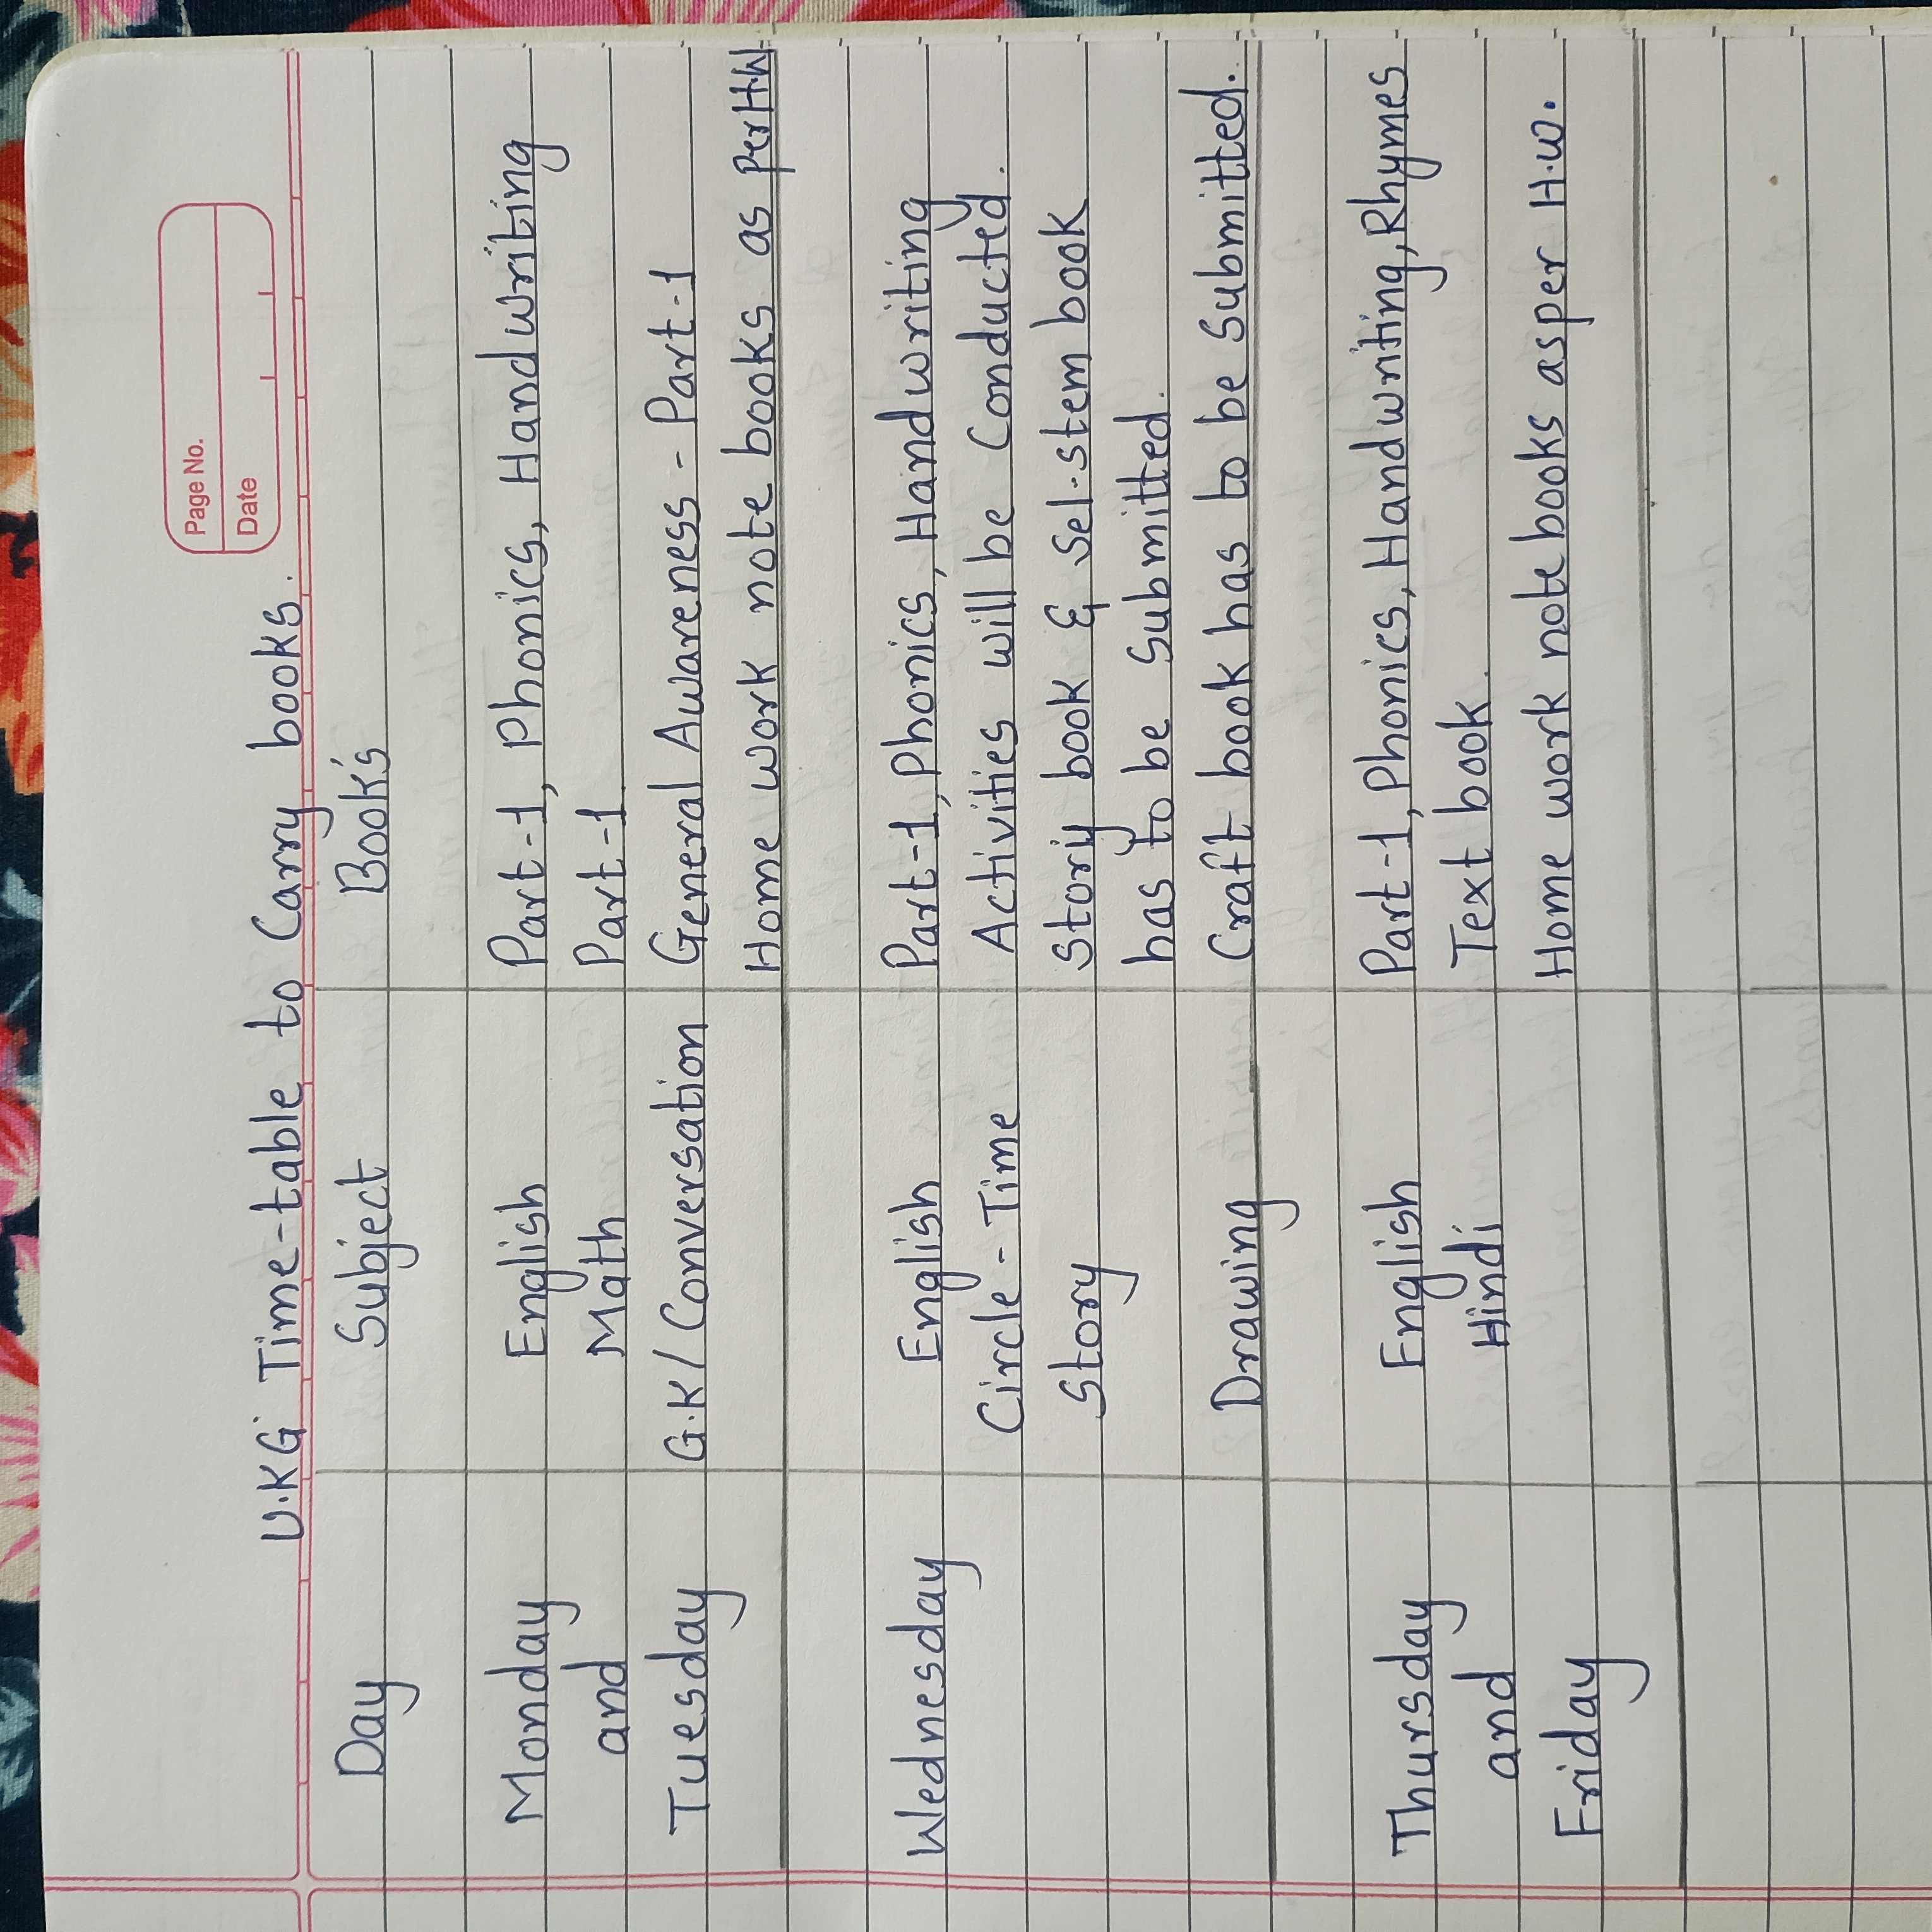 Page No.
Date
U.KG Time-table to Carry books.
Day Subject Book's
Monday English Part-1, Phonics, Handwriting
and Math Part-1
Tuesday G.K/Conversation General Awareness - Part-1
Home work note books as per H.W
Wednesday English Part-1, Phonics, Handwriting
Circle-Time Activities will be Conducted.
Story Story book & Sel-stem book
has to be Submitted.
Drawing Craft book has to be Submitted.
Thursday English Part-1, Phonics, Handwriting, Rhymes
and Hindi Text book
Friday Home work note books asper H.W.